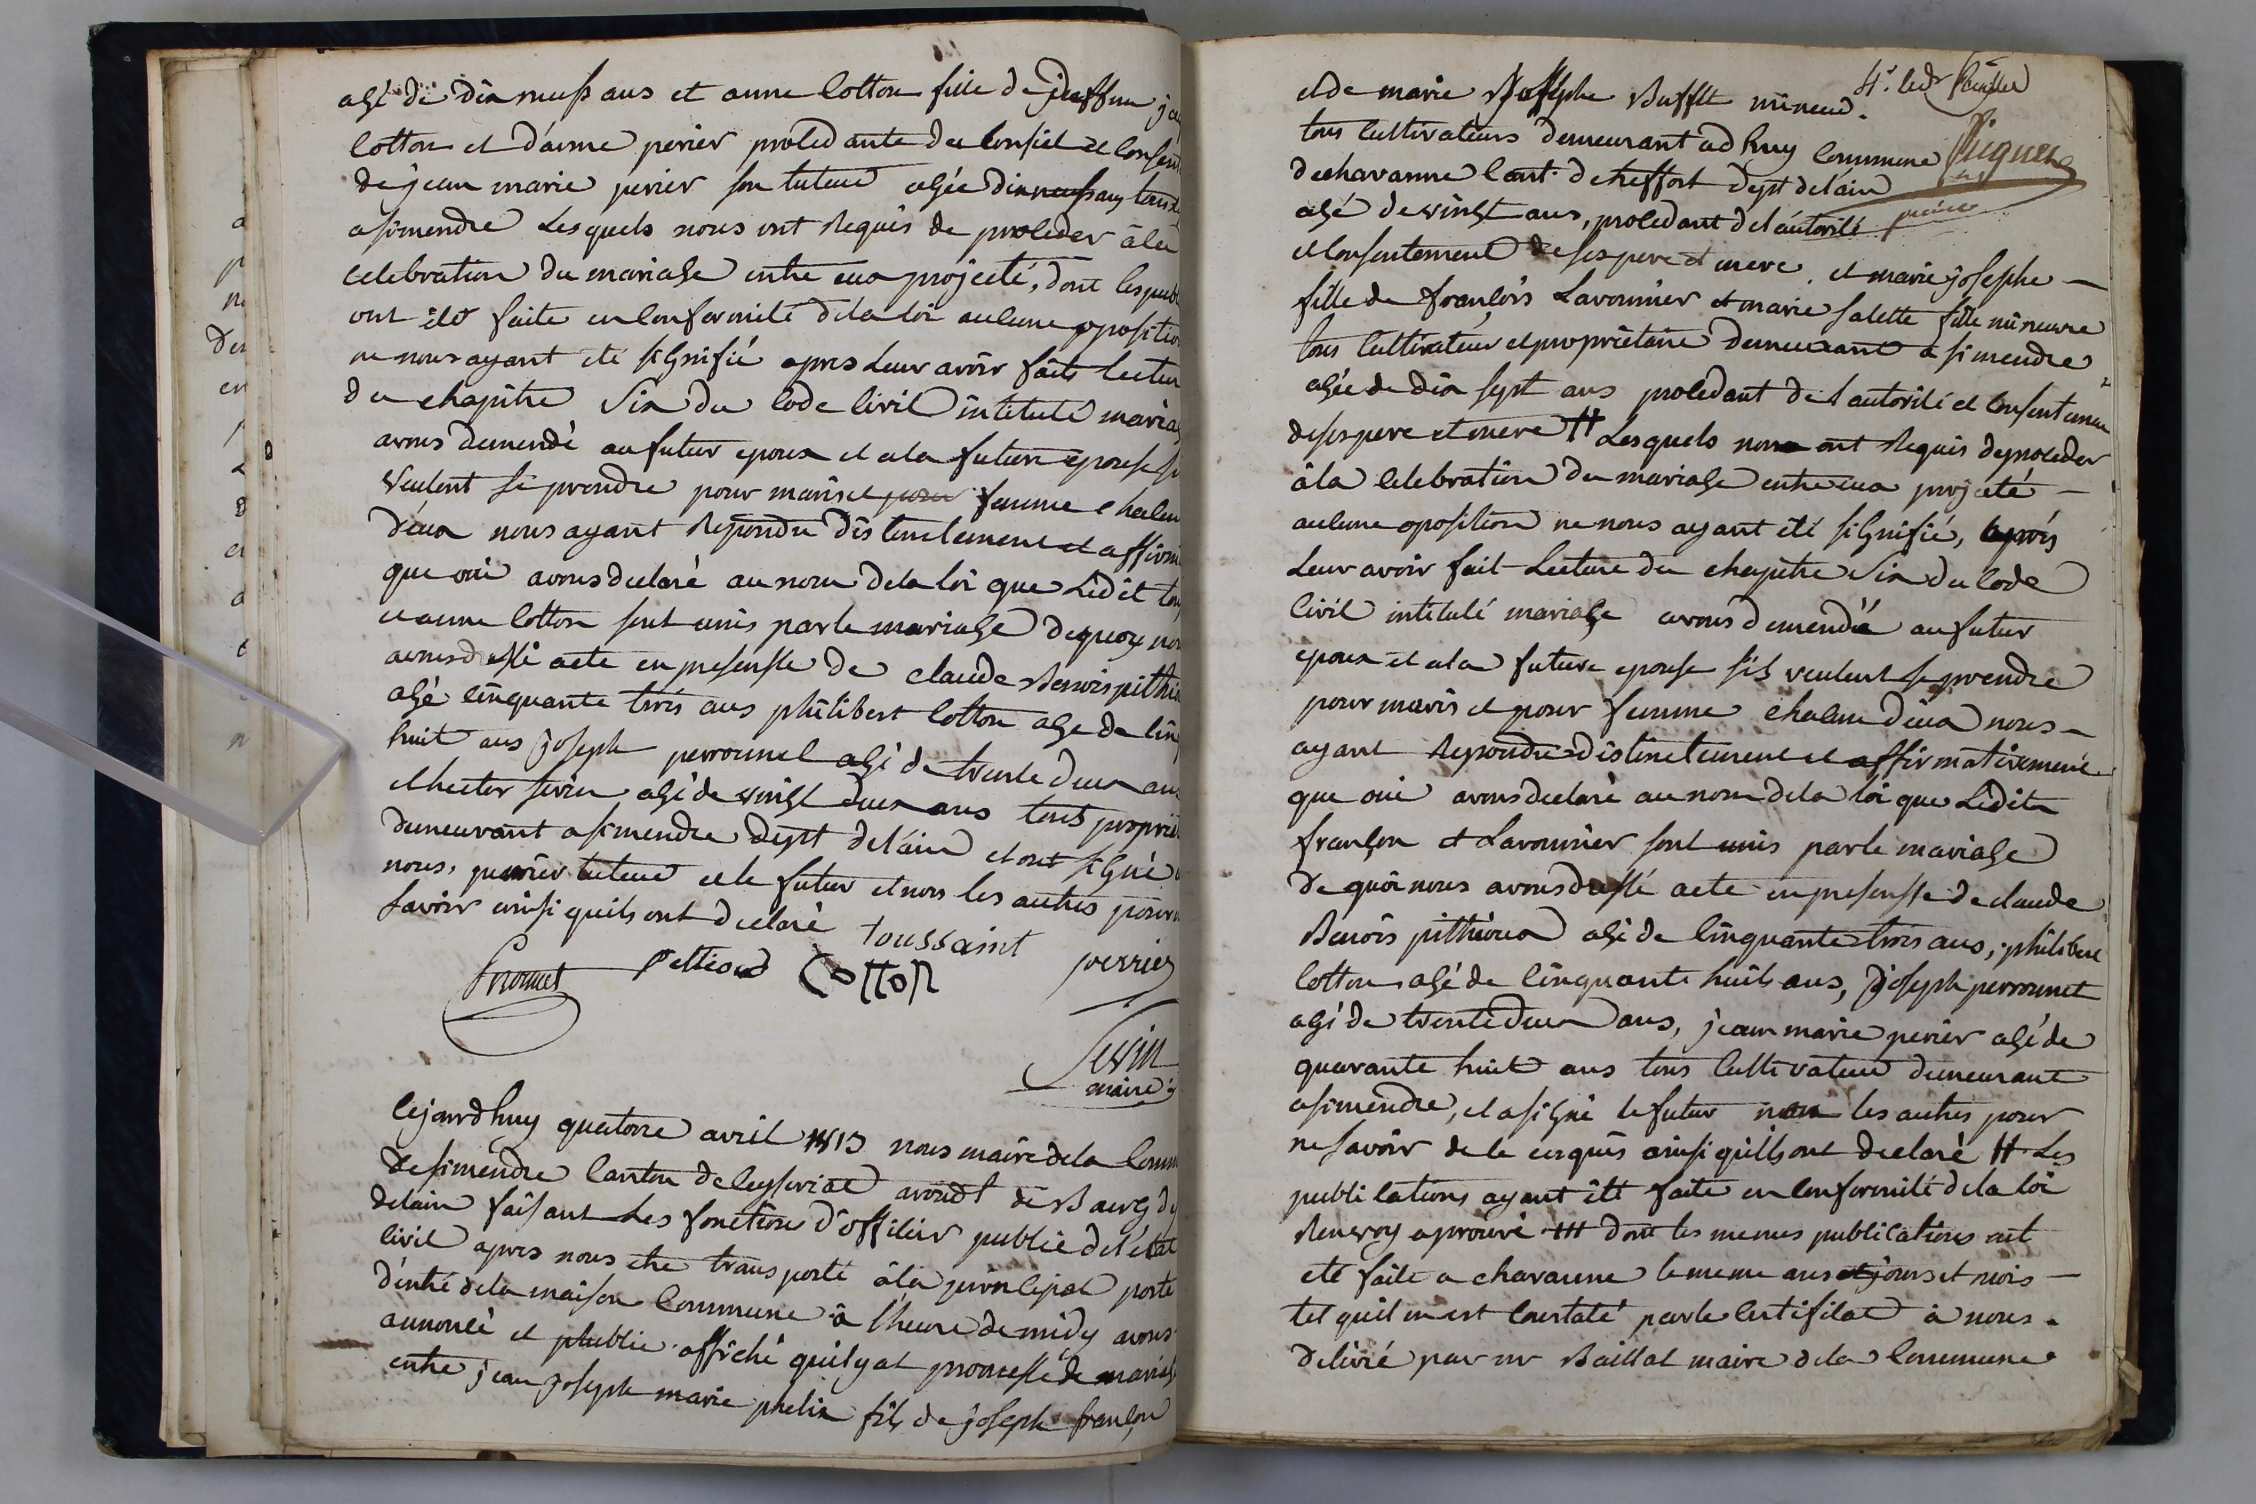 agé de dix neuf ans et anne Cotton fille de jeuffeu
Cotton et d'anne perier procedante du Conseil et Consen
de jean marie perier son tuteur agée dixneufans tous
asimendre Lesquels nous ont Requis de proceder à la
celebration du mariage entre eux projeté, dont les publ
ont été faite en Conformité de la loi aucune oposition
ne nous ayant été signifié apres Leur avoir faits lectur
du chapitre Six du Code Civil intitulé mariag
avons demendé au futur epoux et ala future epouse s
veulent se prendre pour maris et pour femme chacun
d'eux nous ayant Repondu distinctement et affirm
que oui avons declaré au nom de la loi que Ledit tou
et anne Cotton sont unis par le mariage de quoy nou
avons dressé acte en presensse de claude Benois pithi
agé Cinquante trois ans philibert Cotton age de Cinq
huit ans joseph perronnet agé de trente deux ans
et hector sevin agé de vingt deux ans tous proprié
demeurant asimendre dept de l'ain et ont signé
nous, perrier tuteur et le futur et non les autres pour
savoir ainsi quils ont declaré
toussaint
Pronnet Cotton perrier
Sevin
maire
Cejourdhuy quatorze avril 1813 nous maire de la Comm
de simendre Canton de Ceyseriat arondt de Bourg dp
de lain faisant Les fonction d'officier public de l'état
Civil apres nous etre transporté à la principal porte
d'entré de la maison Commune à l'heure de midy avons
annoncé et publié affiché quil y at promesse de mariag
entre jean joseph marie phelix fils de joseph françon
et de marie Josephe Buffet mineur.
4e. feuillet
tous Cultivateurs demeurant ad huy Commune
de chavanne Cant. de treffort dept de l'ain
agé de vingt ans, procedant de l'autorité
et Consentement de ses pere et mere, et marie josephe —
fille de françois Lavonnier et marie Salette fille mineure
tous Cultivateur et proprietaire demeurant a simendre
agée de dix sept ans procedant de l'autorité et Consentemen
de ses pere et mere # Lesquels nous ont Requis de proceder
à la Celebration du mariage entre eux projeté —
aucune oposition ne nous ayant été signifié, après
Leur avoir fait Lecture du chapitre Six du Code
Civil intitulé mariage avons demendé au futur
epoux et ala future epouse s'ils veulent se prendre
pour maris et pour femme chacun d'eux nous —
ayant Repondu distinctement et affirmativement
que oui avons declaré au nom de la loi que Ledit
françon et Lavonnier sont unis par le mariage
De quoi nous avons dressé acte en presensse de claude
Benois pithioux agé de Cinquante trois ans, philibert
Cotton agé de Cinquante huit ans, joseph perronnet
agé de trente deux ans, jean marie perier agé de
quarante huit ans tous Cultivateur demeurant
asimendre, et a signé le futur non les autres pour
ne savoir de ce enquis ainsi quils ont declaré # Les
publications ayant été faite en Conformité de la loi
Renvoy aprouvé ### dont les memes publications ont
eté faite a chavanne le meme ans et jours et mois —
tel quil en est Constaté par le Certificat à nous
delivré par mr Baillat maire de la Commune